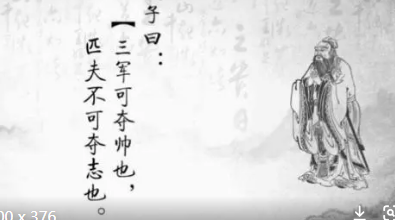 子曰：
【三军可夺帅也，
匹夫不可夺志也。
00 x 376